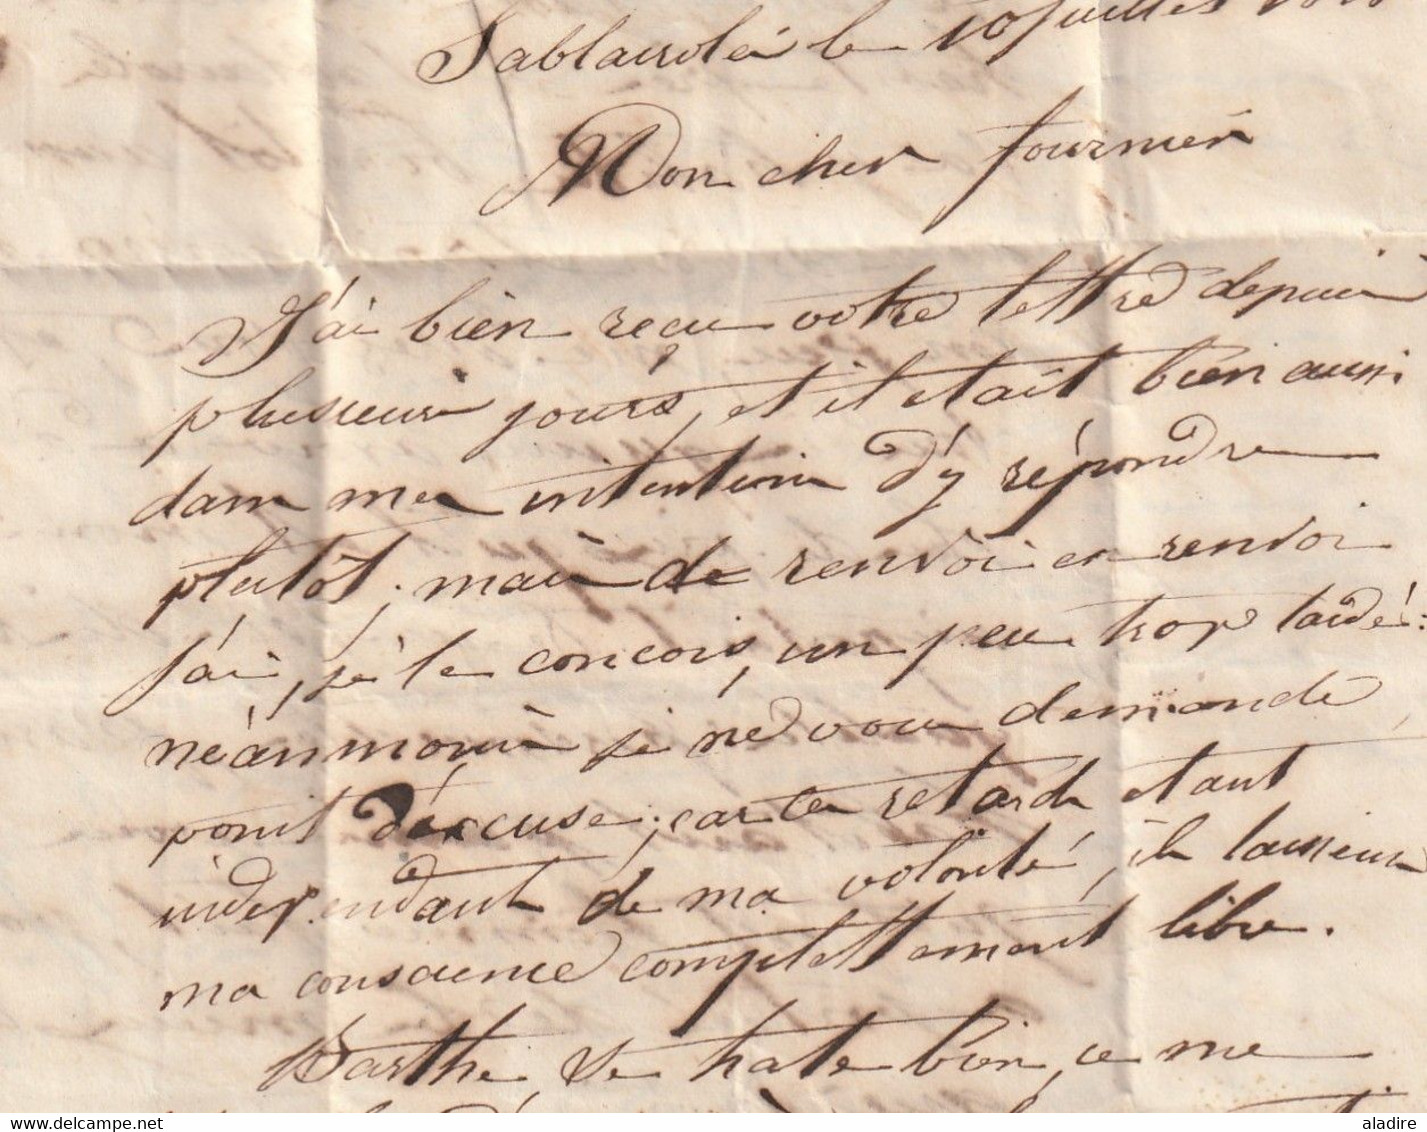 Sablairolés le 10 juillet
Mon cher fournier
J'ai bien reçu votre lettre depuis
plusieurs jours, et il etait bien aussi
dans mes intentions d'y répondre
plutôt; mais de renvoi en renvoi
j'ai, je le concois, un peu trop tardé:
néanmoins je ne vous demande
point d'excuse; car ce retard etant
independant de ma volonté, il laisse
ma conscience complettement libre.
Barthe, se hate bien, ce me
delcampe.net
aladire